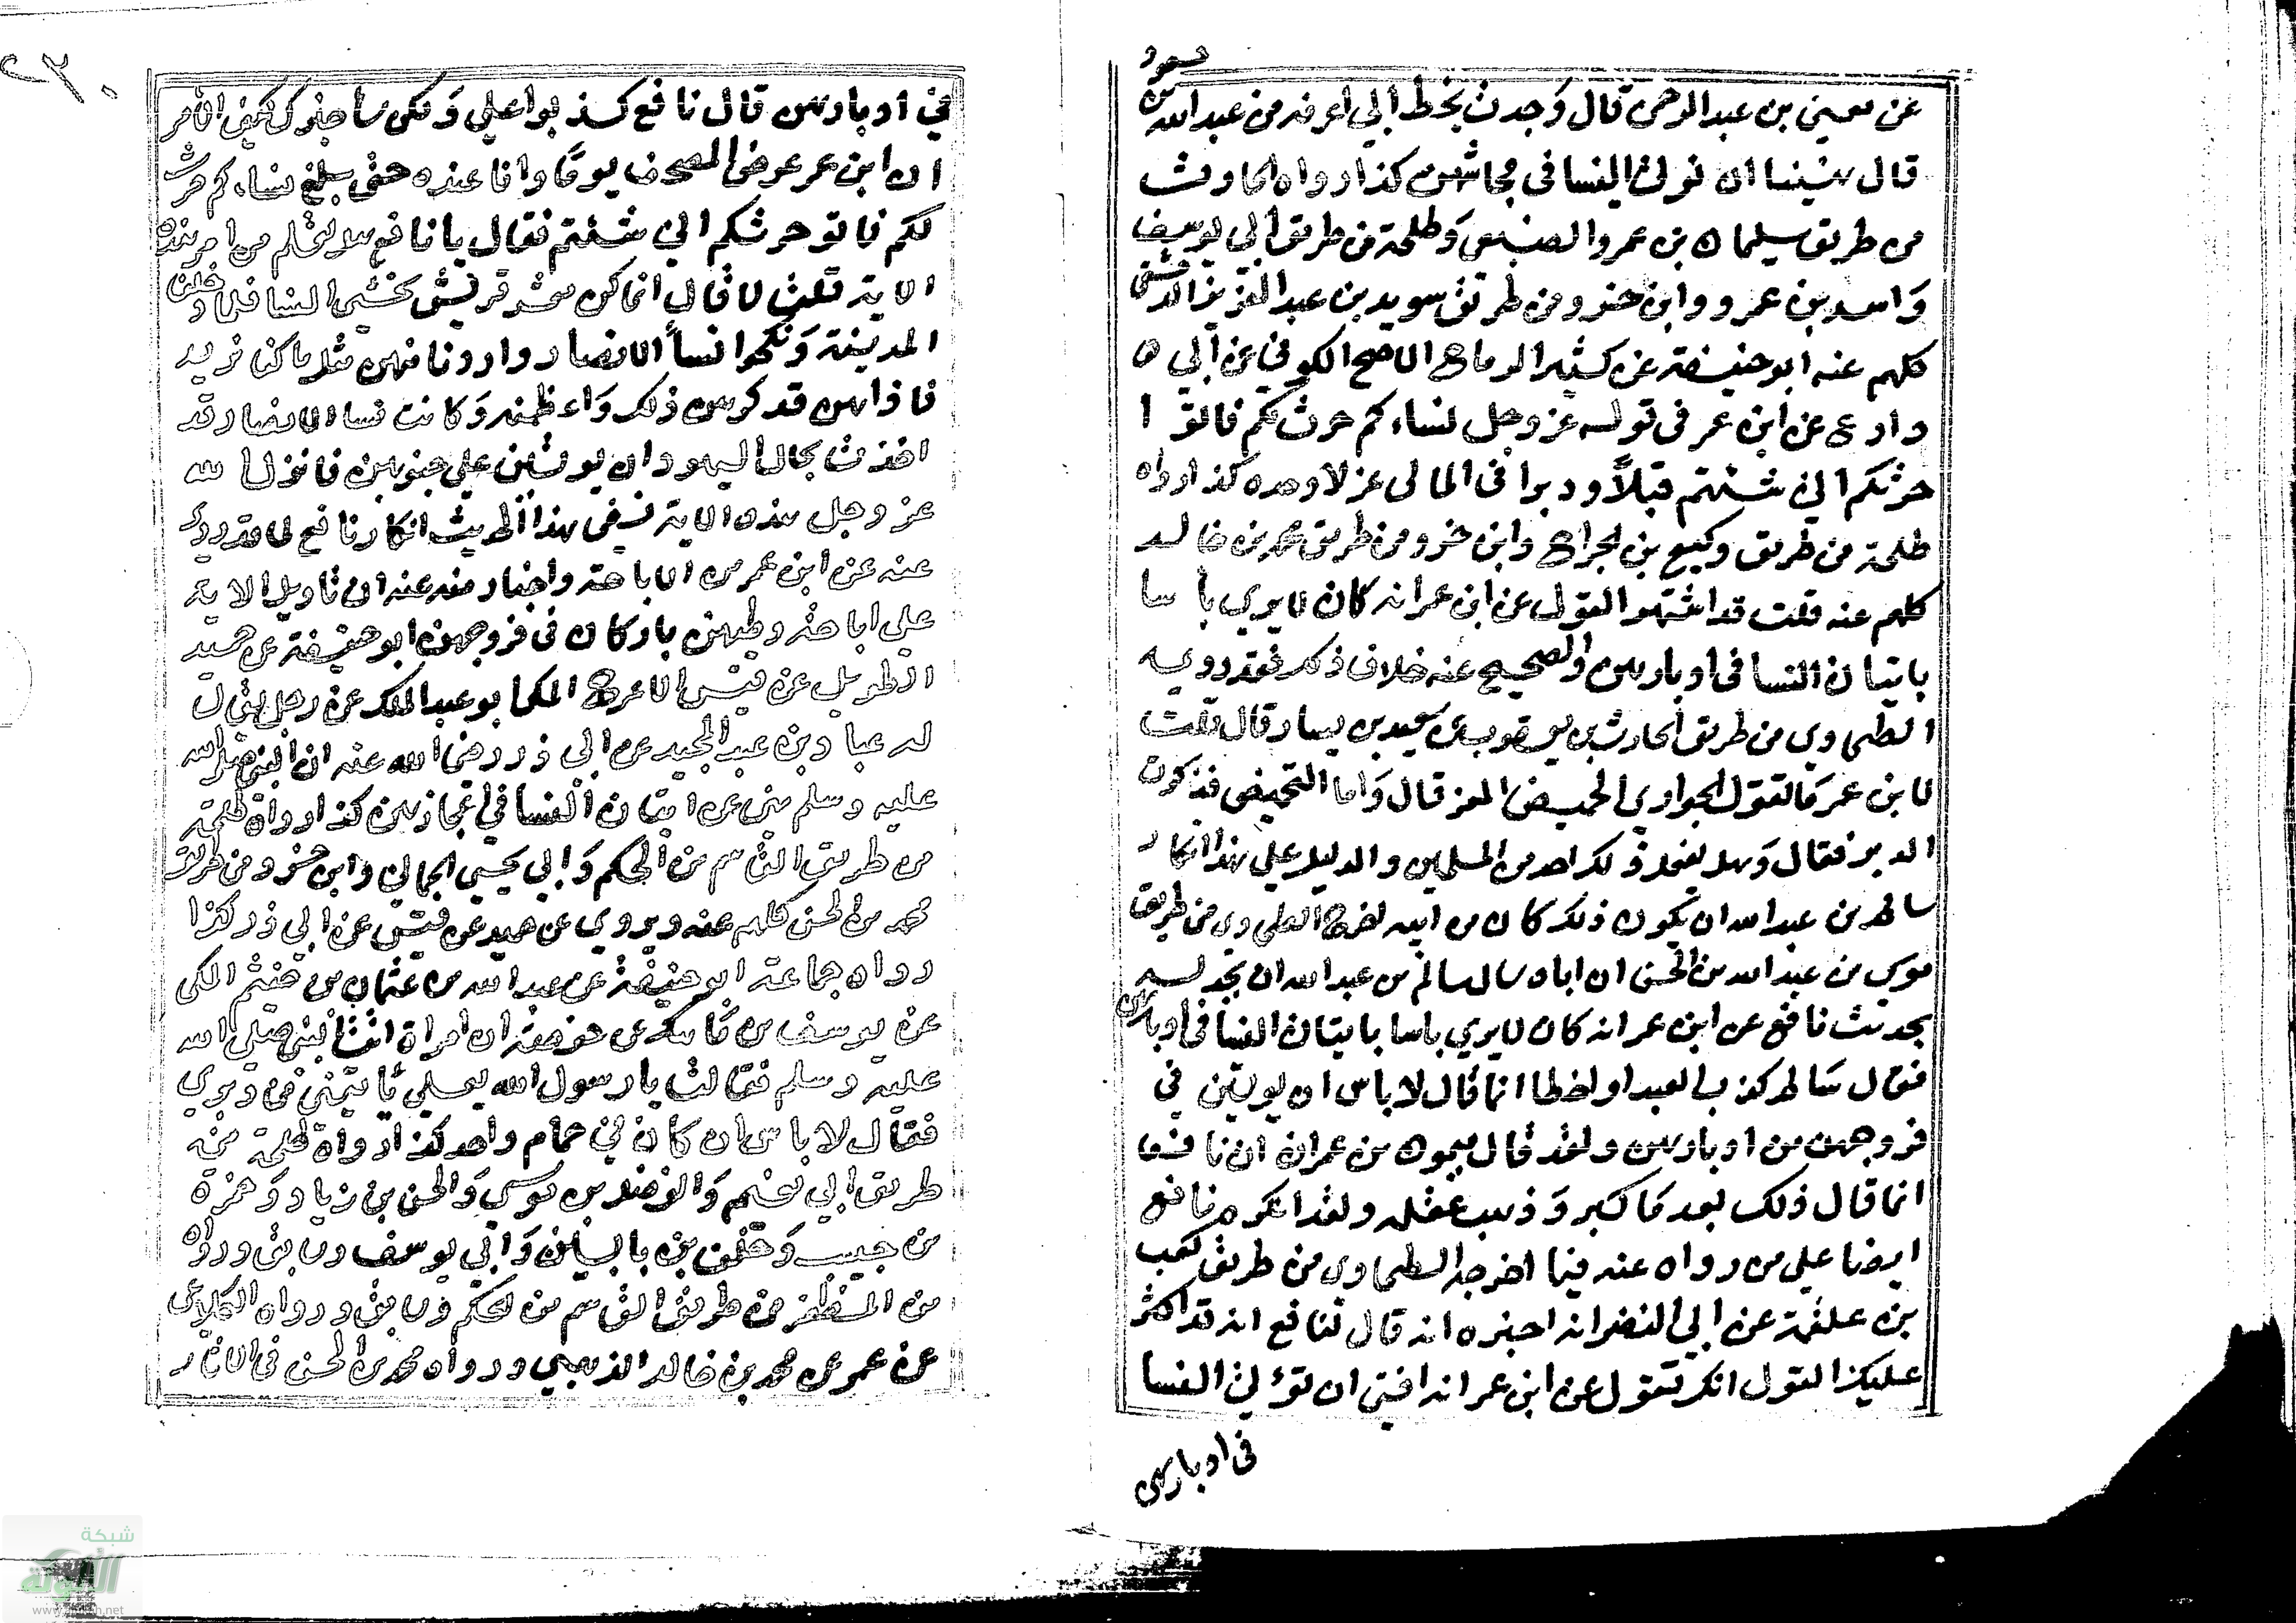 عن معين بن عبد الرحمن قال وجدت بخط أبي اعرفه من عبد الله بن
مسعود
قال نهينا ان نوتي النسا في محاشهن كذا رواه الحارث
من طريق سليمان بن عمرو الضبعي وطلحة من طريق أبي يوسف
وأسد بن عمرو وابن خسرو من طريق سويد بن عبد العزيز الدمشقي
كلهم عنه ابو حنيفة عن كثير الرماح الاصح الكوفي عن أبي ه
دارع عن ابن عمر في قوله عز وجل نساءكم حرث لكم فاتو ا
حرثكم اني شئتم قبلاً ودبرا في الماتى عزلا وضده كذا رواه
طلحة من طريق وكيع بن الجراح وابن خسرو من طريق محمد بن خالد
كلهم عنه قلت قد اشتهر القول عن ابن عمر انه كان لا يري بأ سا
باتيان النسا في ادبارهن والصحيح عنه خلاف ذلك فقد روي
الطحاوي من طريق الحارث بن يعقوب عن سعيد بن يسار قال قلت
لابن عمر ما تقول الجواري الحميض لهن قال وما التحميض فذكرت
الدبر فقال وهل يفعل ذلك احد من المسلمين والدليل علي هذا انكار
سالم بن عبد الله ان يكون ذلك كان من ابيه اخرج الطحاوي من طريق
موسي بن عبد الله بن الحسن ان اباه سال سالم بن عبد الله ان يحدثه
بحديث نافع عن ابن عمر انه كان لا يري باسا باتيان النسا في ادبارهن
فقال سالم كذب العبد او اخطا انما قال لا باس ان يوتين في
فروجهن من ادبارهن ولقد قال ميمون بن مهران ان نافعا
انما قال ذلك بعد ما كبر وذهب عقله ولقد انكره نافع
ايضا علي من رواه عنه فيما اخرجه الطحاوي من طريق كعب
بن علقمة عن ابي النضر انه اخبره انه قال لنافع انه قد اكثر
عليك القول انك تقول عن ابن عمر انه افتى ان تؤتي النسا
في ادبارهن
في ادبارهن قال نافع كذبوا علي ولكن ساخبرك كيف الامر
ان ابن عمر عرض المصحف يوما وانا عنده حتى بلغ نساءكم حرث
لكم فاتو حرثكم اني شئتم فقال يا نافع هل تعلم من امر هذه
الاية قلت لا قال انا كنا معشر قريش نجبي النسا فلما دخلنا
المدينة ونكحوا نسأ الانصار واردنا منهن مثل ما كنا نريد
فاذا هن قد كرهن ذلك واعظمنه وكانت نسا الانصار قد
اخذت بحال اليهود ان يوتين علي جنوبهن فانزل الله
عز وجل هذه الاية ففي هذا الحديث انكار نافع لما قد روي
عنه عن ابن عمر من الاباحة واخبار منه عنه ان تاويل الاية
علي اباحة وطيهن باركان في فروجهن ابو حنيفة عن حميد
الطويل عن قيس الاعرج المكي ابو عبد الملك عن رجل يقال
له عباد بن عبد المجيد عن ابي ذر رضي الله عنه ان النبي صلى الله
عليه وسلم نهي عن اتيان النسا في اعجازهن كذا رواه طلحة
من طريق القاسم بن الحكم وأبي يحيي الحماني وابن خسرو من طريق
محمد بن الحسن كلهم عنه ويروي عن حميد عن قيس عن ابي ذر كذا
رواه جماعة ابو حنيفة عن عبد الله بن عثمان بن خيثم المكي
عن يوسف بن ماهك عن حفصة ان امراة اتت النبي صلي الله
عليه وسلم فقالت يا رسول الله بعلي ياتيني من دبري
فقال لا باس ان كان في صمام واحد كذا رواه طلحة من
طريق ابي نعيم والفضل بن موسي والحسن بن زياد وحمزة
بن حبيب وخلف بن ياسين وأبي يوسف وسابق ورواه
بن المظفر من طريق القاسم بن الحكم وسابق ورواه الكلاعي
عن عمر عن محمد بن خالد الذهبي ورواه محمد بن الحسن في الاثار
شبكة
الألوكة